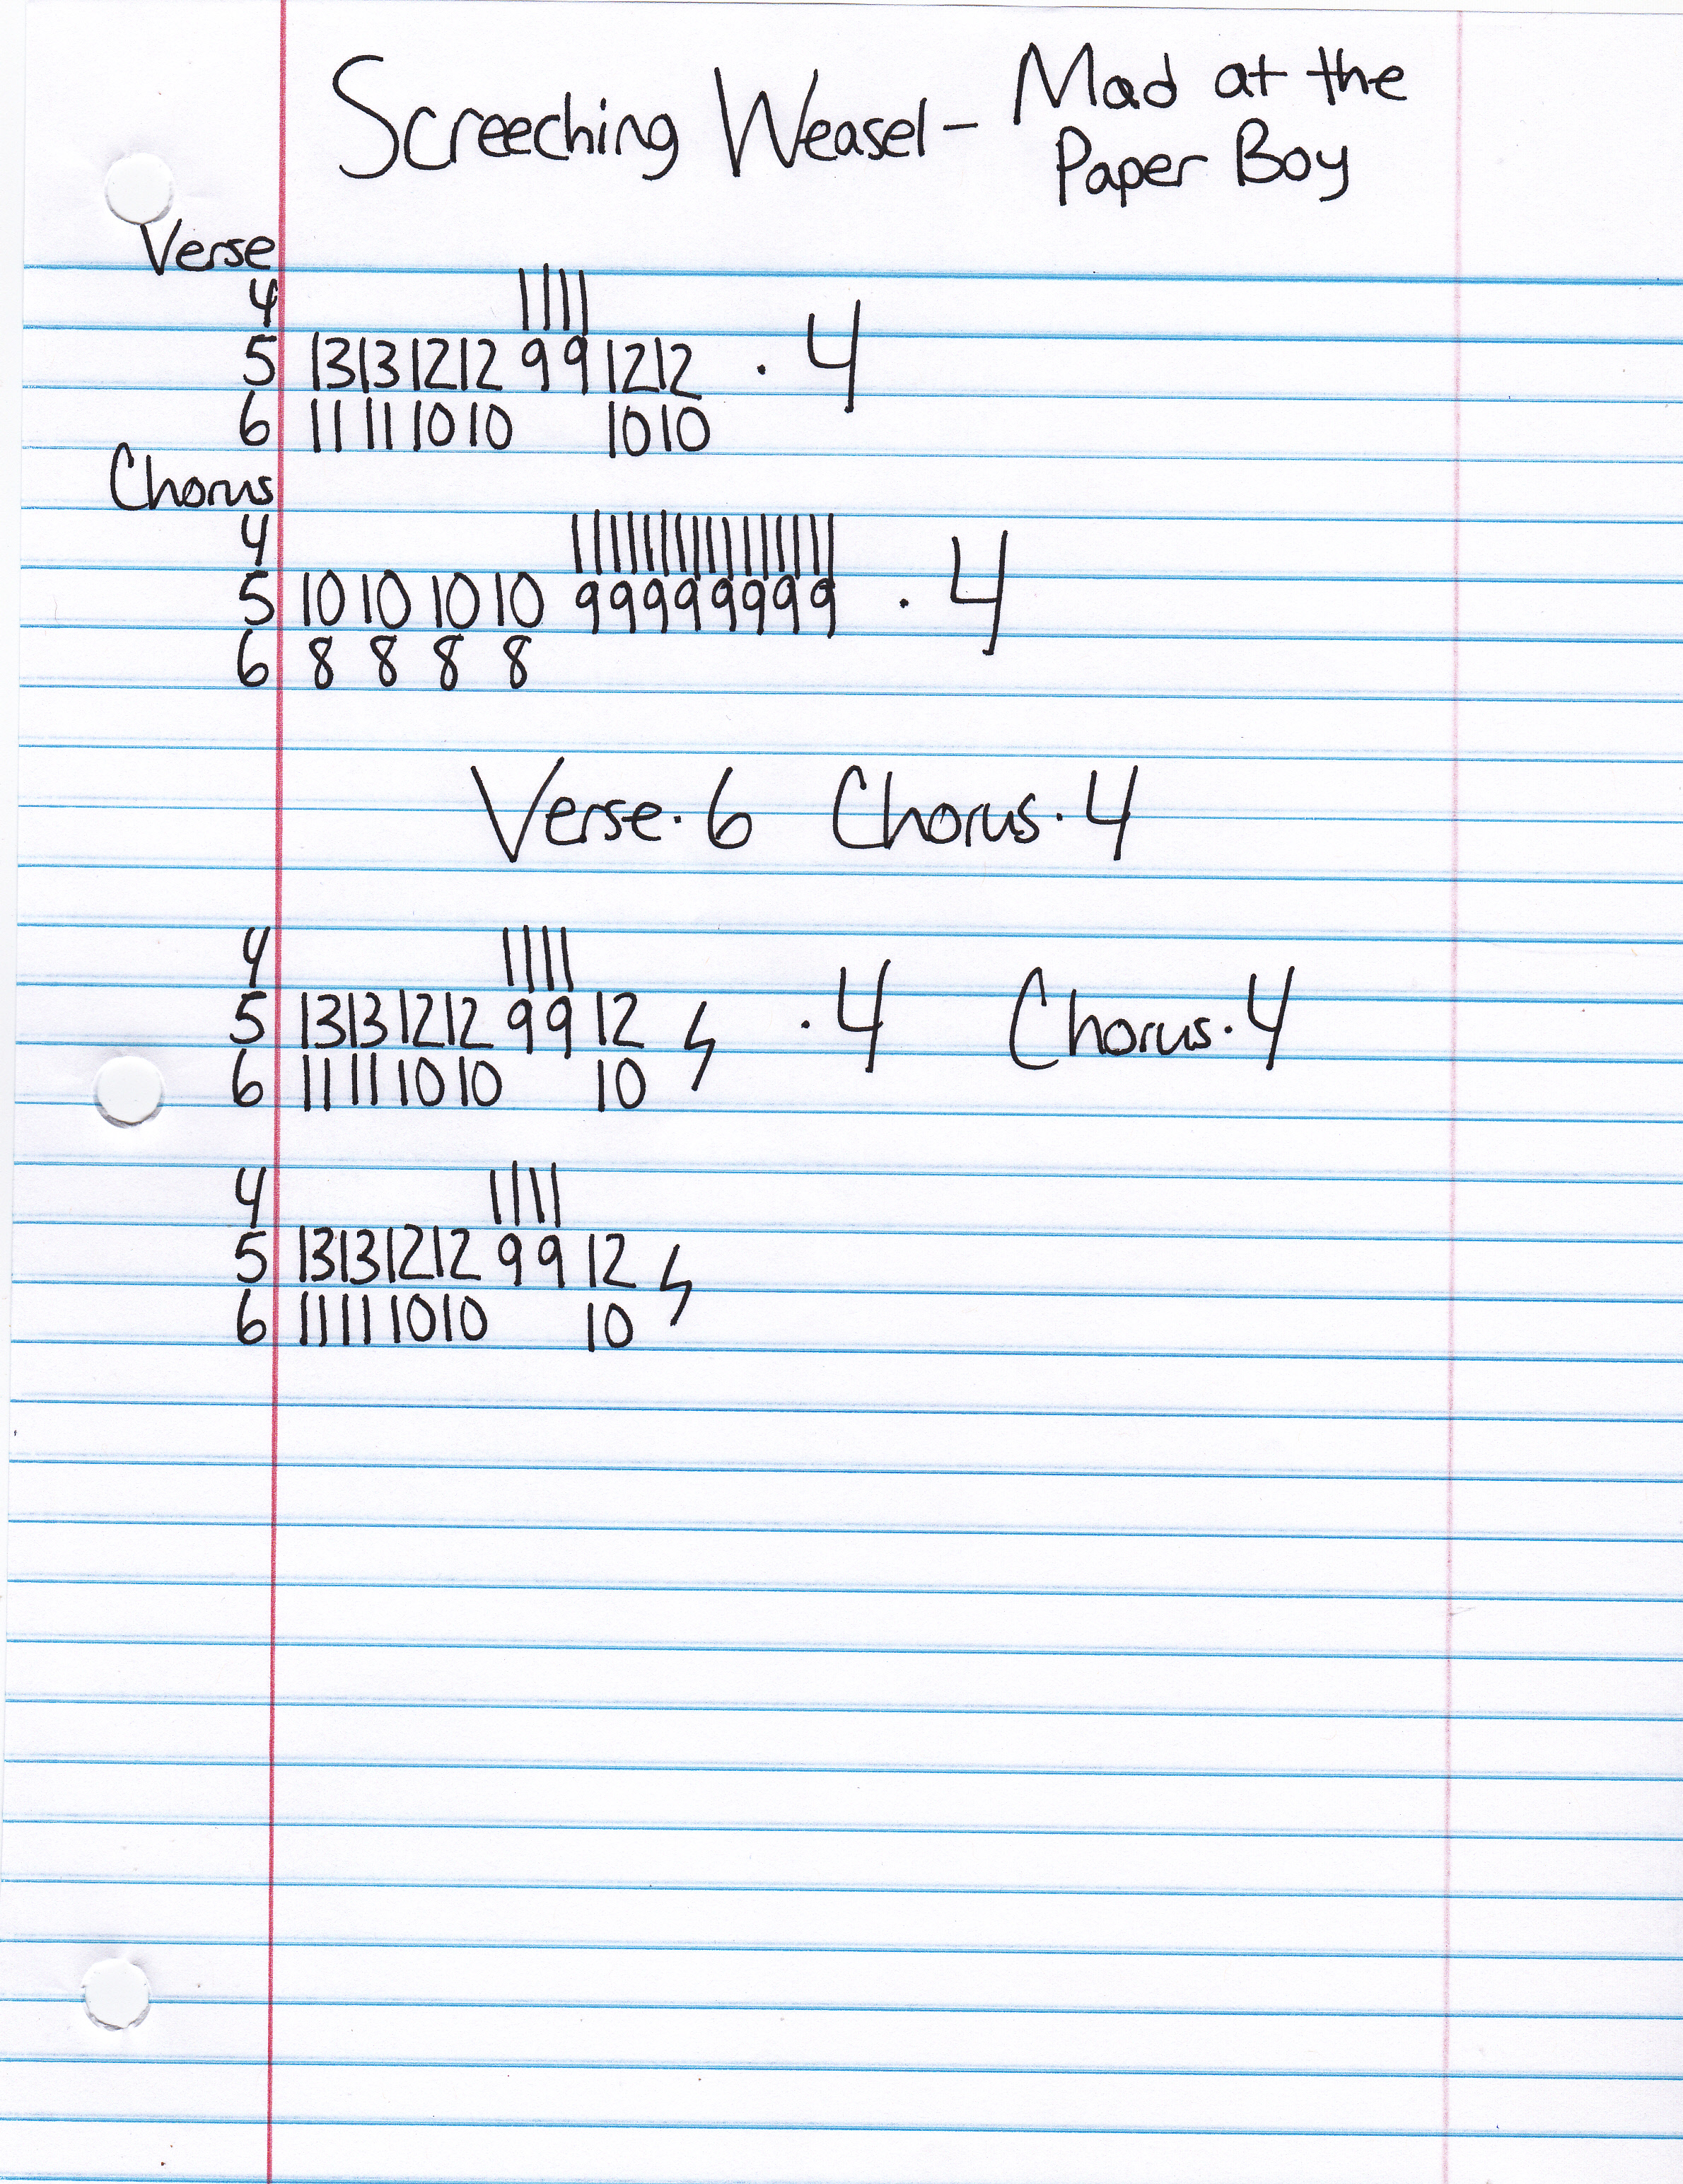 Screeching Weasel - Mad at the
Paper Boy
Verse
4 11 11
5 13 13 12 12 9 9 12 12 · 4
6 11 11 10 10 10 10
Chorus
4 11 11 11 11 11 11 11 11
5 10 10 10 10 9 9 9 9 9 9 9 9 · 4
6 8 8 8 8
Verse · 6 Chorus · 4
4 11 11
5 13 13 12 12 9 9 12 ϟ · 4 Chorus · 4
6 11 11 10 10 10
4 11 11
5 13 13 12 12 9 9 12 ϟ
6 11 11 10 10 10